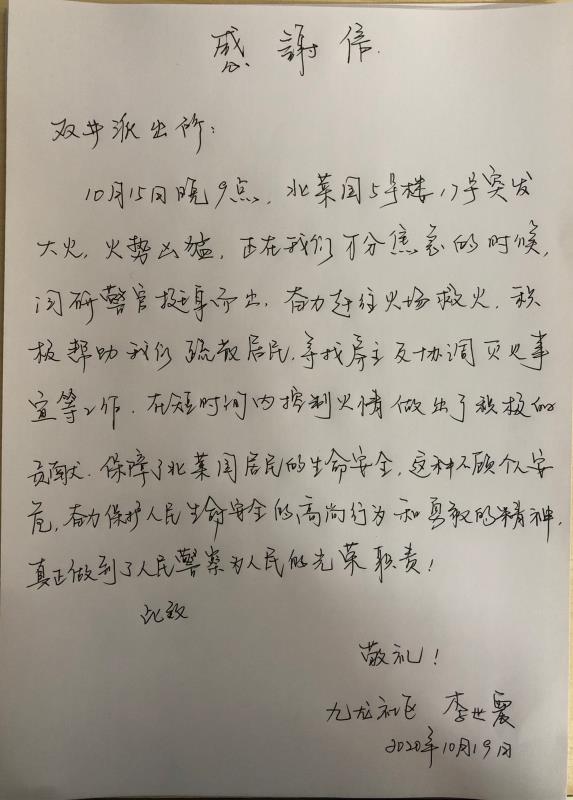 感謝信
双井派出所：
10月15日晚9点，北菜园5号楼17号突发
大火，火势凶猛，正在我们万分焦急的时候，
闫研警官挺身而出，奋力赶往火场救火，积
极帮助我们疏散居民，寻找房主及协调灭火事
宜等工作，在短时间内控制火情做出了积极的
贡献，保障了北菜园居民的生命安全，这种不顾个人安
危，奋力保护人民生命安全的高尚行为和勇敢的精神，
真正做到了人民警察为人民的光荣职责！
此致
敬礼！
九龙社区 李世震
2020年10月19日